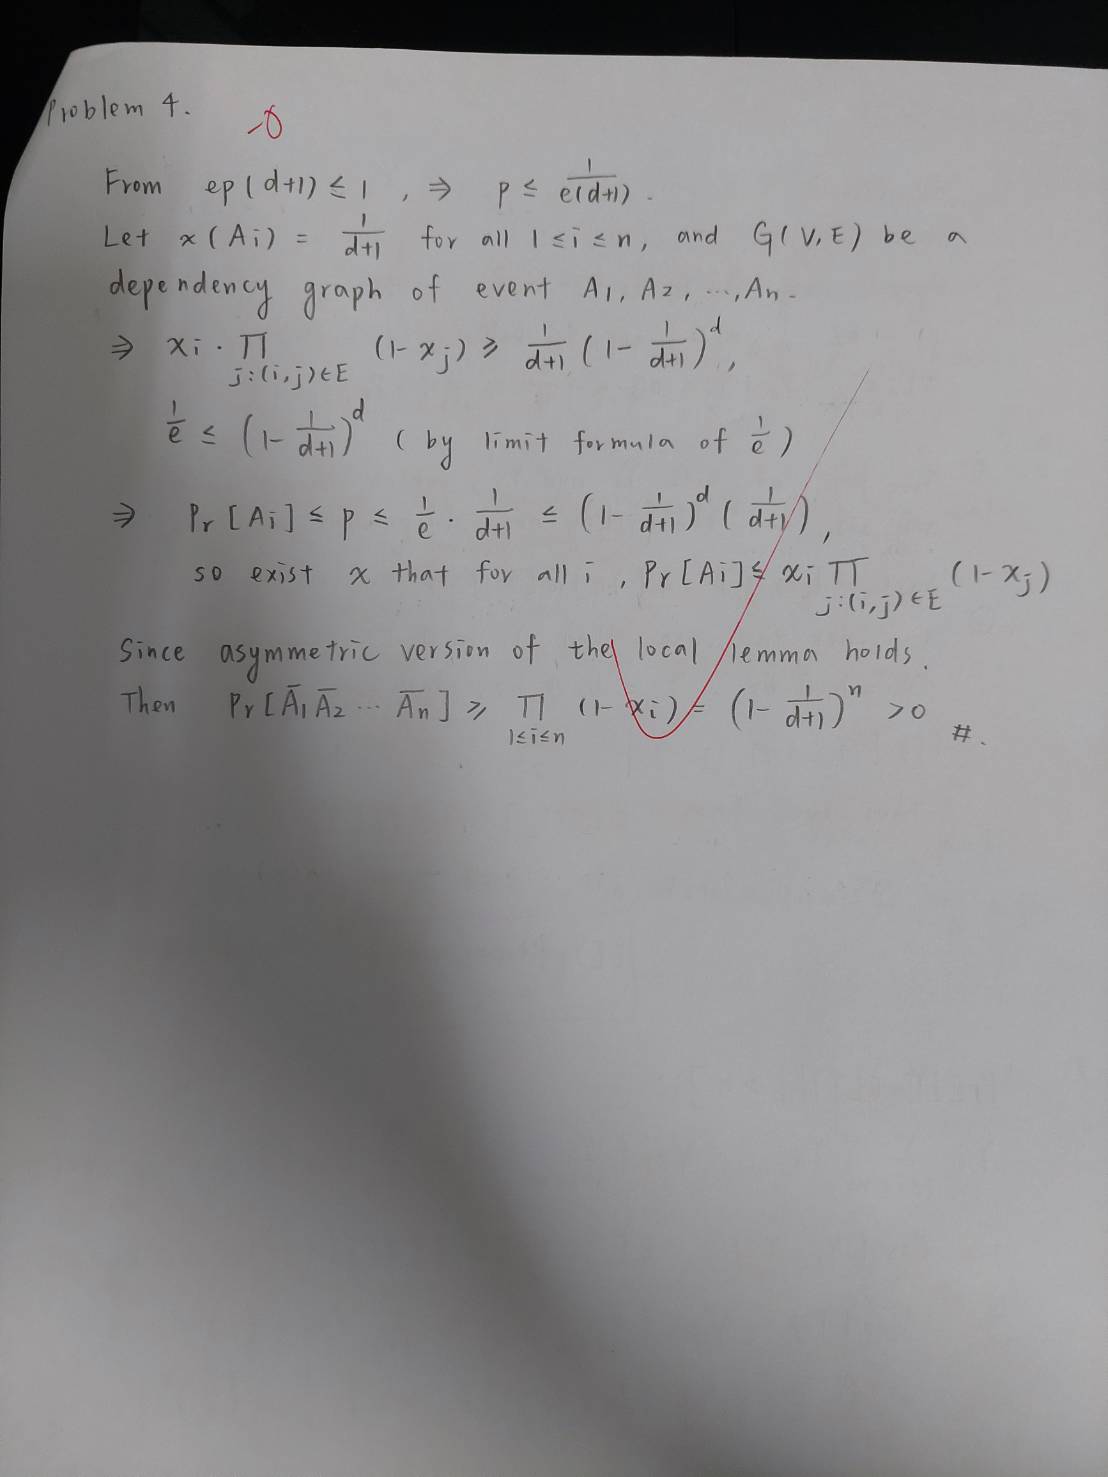 Problem 4.
-0
From ep(d+1) ≤ 1 , ⇒ p ≤ 1/e(d+1) .
Let x(Ai) = 1/d+1 for all 1 ≤ i ≤ n, and G(V,E) be a
dependency graph of event A1, A2, ..., An.
⇒ xi · ∏ j:(i,j)∈E (1-xj) ≥ 1/d+1 (1 - 1/d+1)^d ,
1/e ≤ (1 - 1/d+1)^d ( by limit formula of 1/e )
⇒ Pr[Ai] ≤ p ≤ 1/e · 1/d+1 ≤ (1 - 1/d+1)^d ( 1/d+1 ) ,
so exist x that for all i , Pr[Ai] ≤ xi ∏ j:(i,j)∈E (1-xj)
Since asymmetric version of the local lemma holds.
Then Pr[Ā1 Ā2 ... Ān] ≥ ∏ 1≤i≤n (1-xi) = (1 - 1/d+1)^n > 0 #.